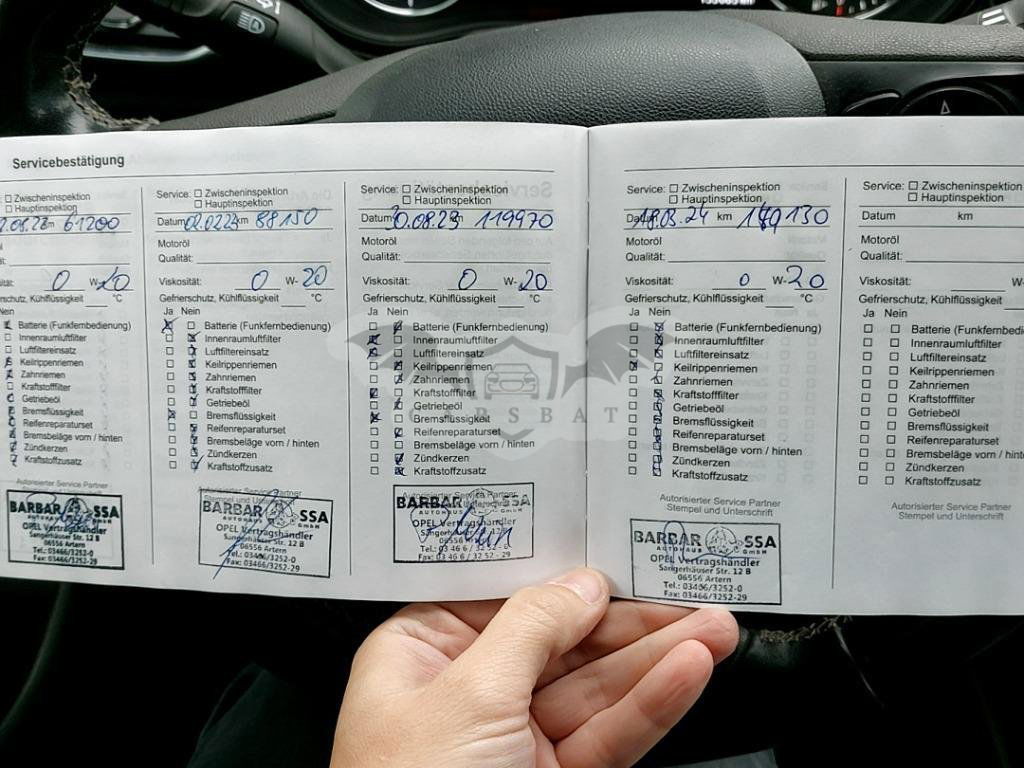 Servicebestätigung
Zwischeninspektion
Hauptinspektion
61200
Motoröl
Qualität:
Viskosität:
0 W-20
Gefrierschutz, Kühlflüssigkeit °C
Nein
Batterie (Funkfernbedienung)
Innenraumluftfilter
Luftfiltereinsatz
Keilrippenriemen
Zahnriemen
Kraftstofffilter
Getriebeöl
Bremsflüssigkeit
Reifenreparaturset
Bremsbeläge vorn / hinten
Zündkerzen
Kraftstoffzusatz
BARBAR SSA
AUTOHAUS GmbH
OPEL Vertragshändler
Sangerhäuser Str. 12 B
06556 Artern
Tel.: 03466/3252-0
Fax: 03466/3252-29
Service: Zwischeninspektion
Hauptinspektion
Datum km 88150
Motoröl
Qualität:
Viskosität: 0 W-20
Gefrierschutz, Kühlflüssigkeit °C
Ja Nein
Batterie (Funkfernbedienung)
Innenraumluftfilter
Luftfiltereinsatz
Keilrippenriemen
Zahnriemen
Kraftstofffilter
Getriebeöl
Bremsflüssigkeit
Reifenreparaturset
Bremsbeläge vorn / hinten
Zündkerzen
Kraftstoffzusatz
Autorisierter Service Partner
Stempel und Unterschrift
BARBAR SSA
AUTOHAUS GmbH
OPEL Vertragshändler
Sangerhäuser Str. 12 B
06556 Artern
Tel.: 03466/3252-0
Fax: 03466/3252-29
Service: Zwischeninspektion
Hauptinspektion
Datum 30.08.23 119970
Motoröl
Qualität:
Viskosität: 0 W-20
Gefrierschutz, Kühlflüssigkeit °C
Ja Nein
Batterie (Funkfernbedienung)
Innenraumluftfilter
Luftfiltereinsatz
Keilrippenriemen
Zahnriemen
Kraftstofffilter
Getriebeöl
Bremsflüssigkeit
Reifenreparaturset
Bremsbeläge vorn / hinten
Zündkerzen
Kraftstoffzusatz
Autorisierter Service Partner
BARBAR SSA
AUTOHAUS GmbH
OPEL Vertragshändler
Sangerhäuser Str. 12 B
06556 Artern
Tel.: 03466/3252-0
Fax: 03466/3252-29
Service: Zwischeninspektion
Hauptinspektion
Datum 18.03.24 km
Motoröl
Qualität:
Viskosität: 0 W-20
Gefrierschutz, Kühlflüssigkeit °C
Ja Nein
Batterie (Funkfernbedienung)
Innenraumluftfilter
Luftfiltereinsatz
Keilrippenriemen
Zahnriemen
Kraftstofffilter
Getriebeöl
Bremsflüssigkeit
Reifenreparaturset
Bremsbeläge vorn / hinten
Zündkerzen
Kraftstoffzusatz
Autorisierter Service Partner
Stempel und Unterschrift
BARBAR SSA
AUTOHAUS GmbH
OPEL Vertragshändler
Sangerhäuser Str. 12 B
06556 Artern
Tel.: 03466/3252-0
Fax: 03466/3252-29
Service: Zwischeninspektion
Hauptinspektion
Datum km
Motoröl
Qualität:
Viskosität: W-
Gefrierschutz, Kühlflüssigkeit
Ja Nein
Batterie (Funkfernbedienung)
Innenraumluftfilter
Luftfiltereinsatz
Keilrippenriemen
Zahnriemen
Kraftstofffilter
Getriebeöl
Bremsflüssigkeit
Reifenreparaturset
Bremsbeläge vorn / hinten
Zündkerzen
Kraftstoffzusatz
Autorisierter Service Partner
Stempel und Unterschrift